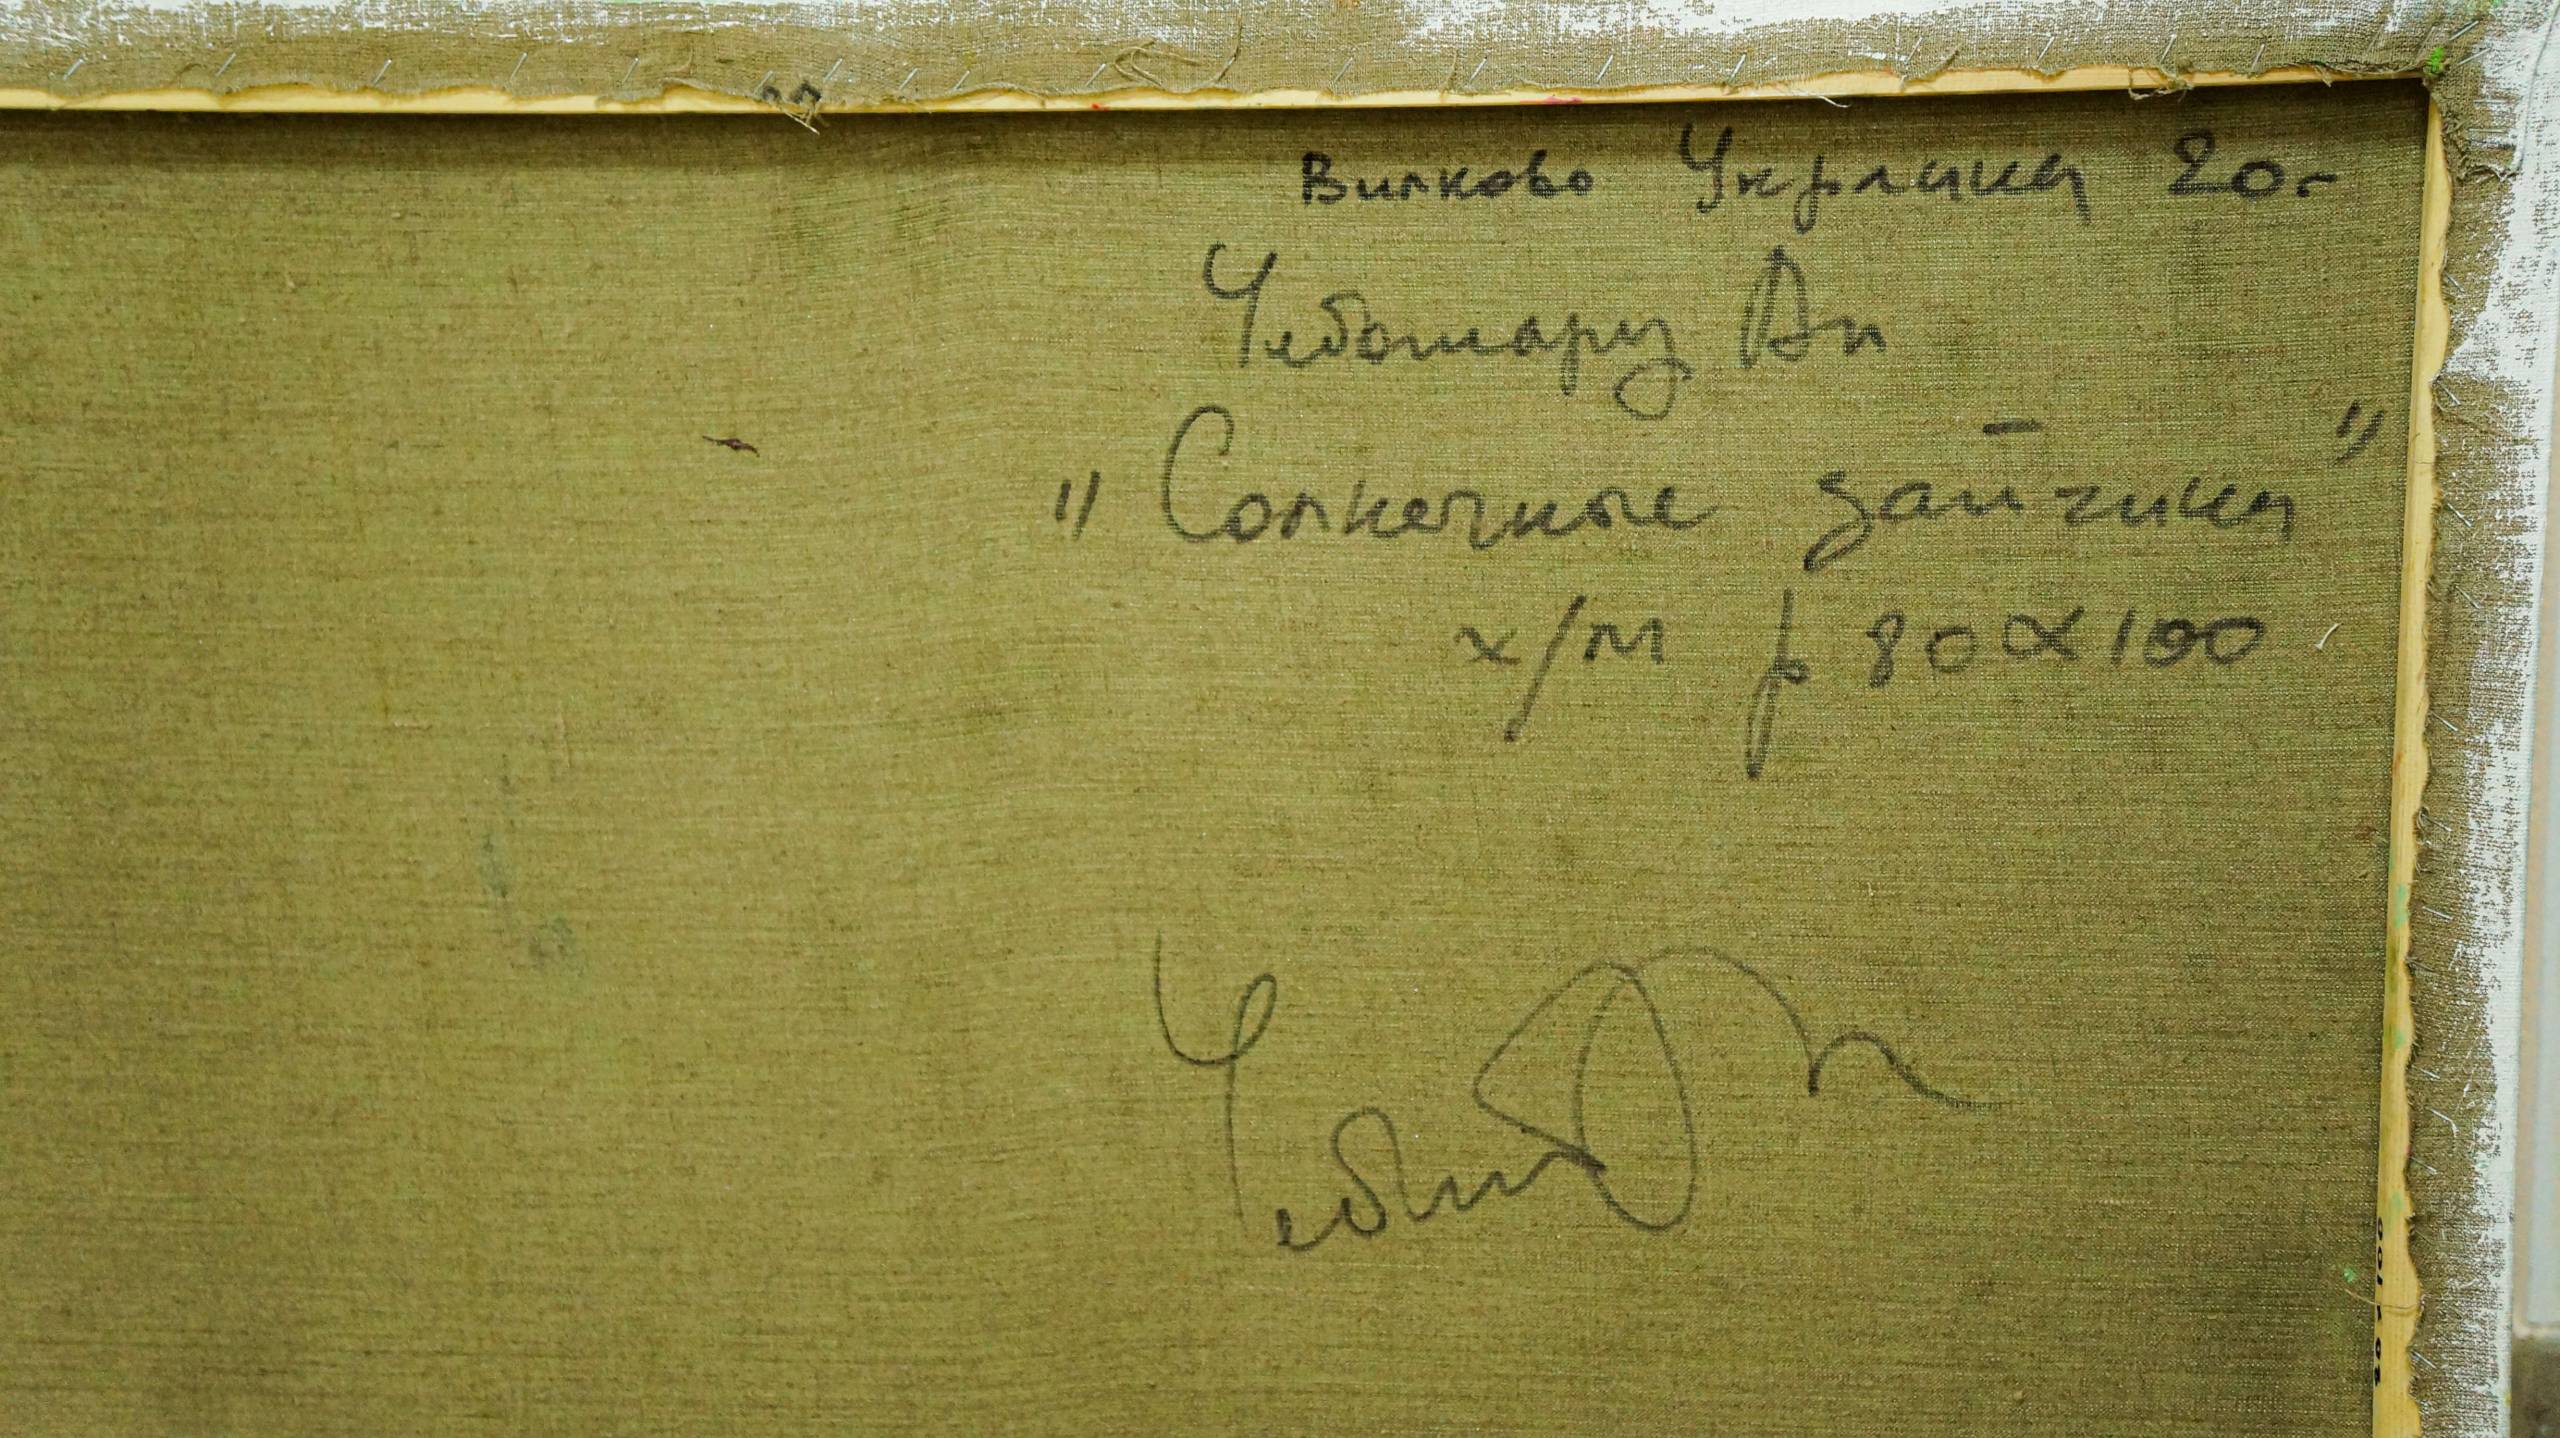 Вилково Украина 20г
Чеботару Ал
"Солнечные зайчики"
х/м р 80х100
80х100